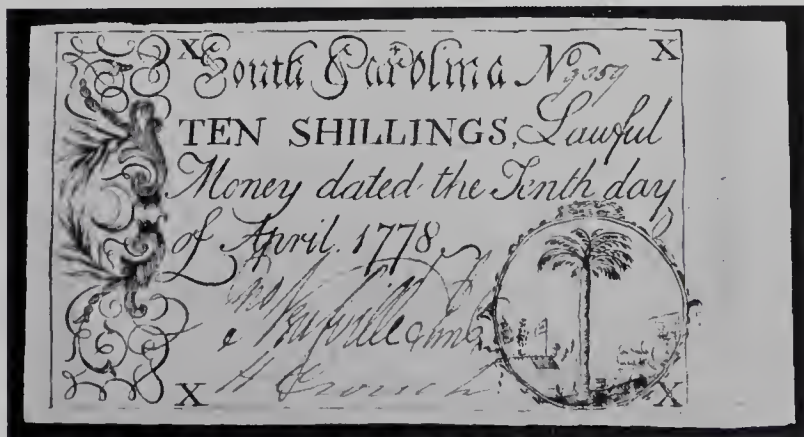 X South Carolina No 9359 X
TEN SHILLINGS, Lawful
Money dated the Tenth day
of April. 1778.
X H Crouch X